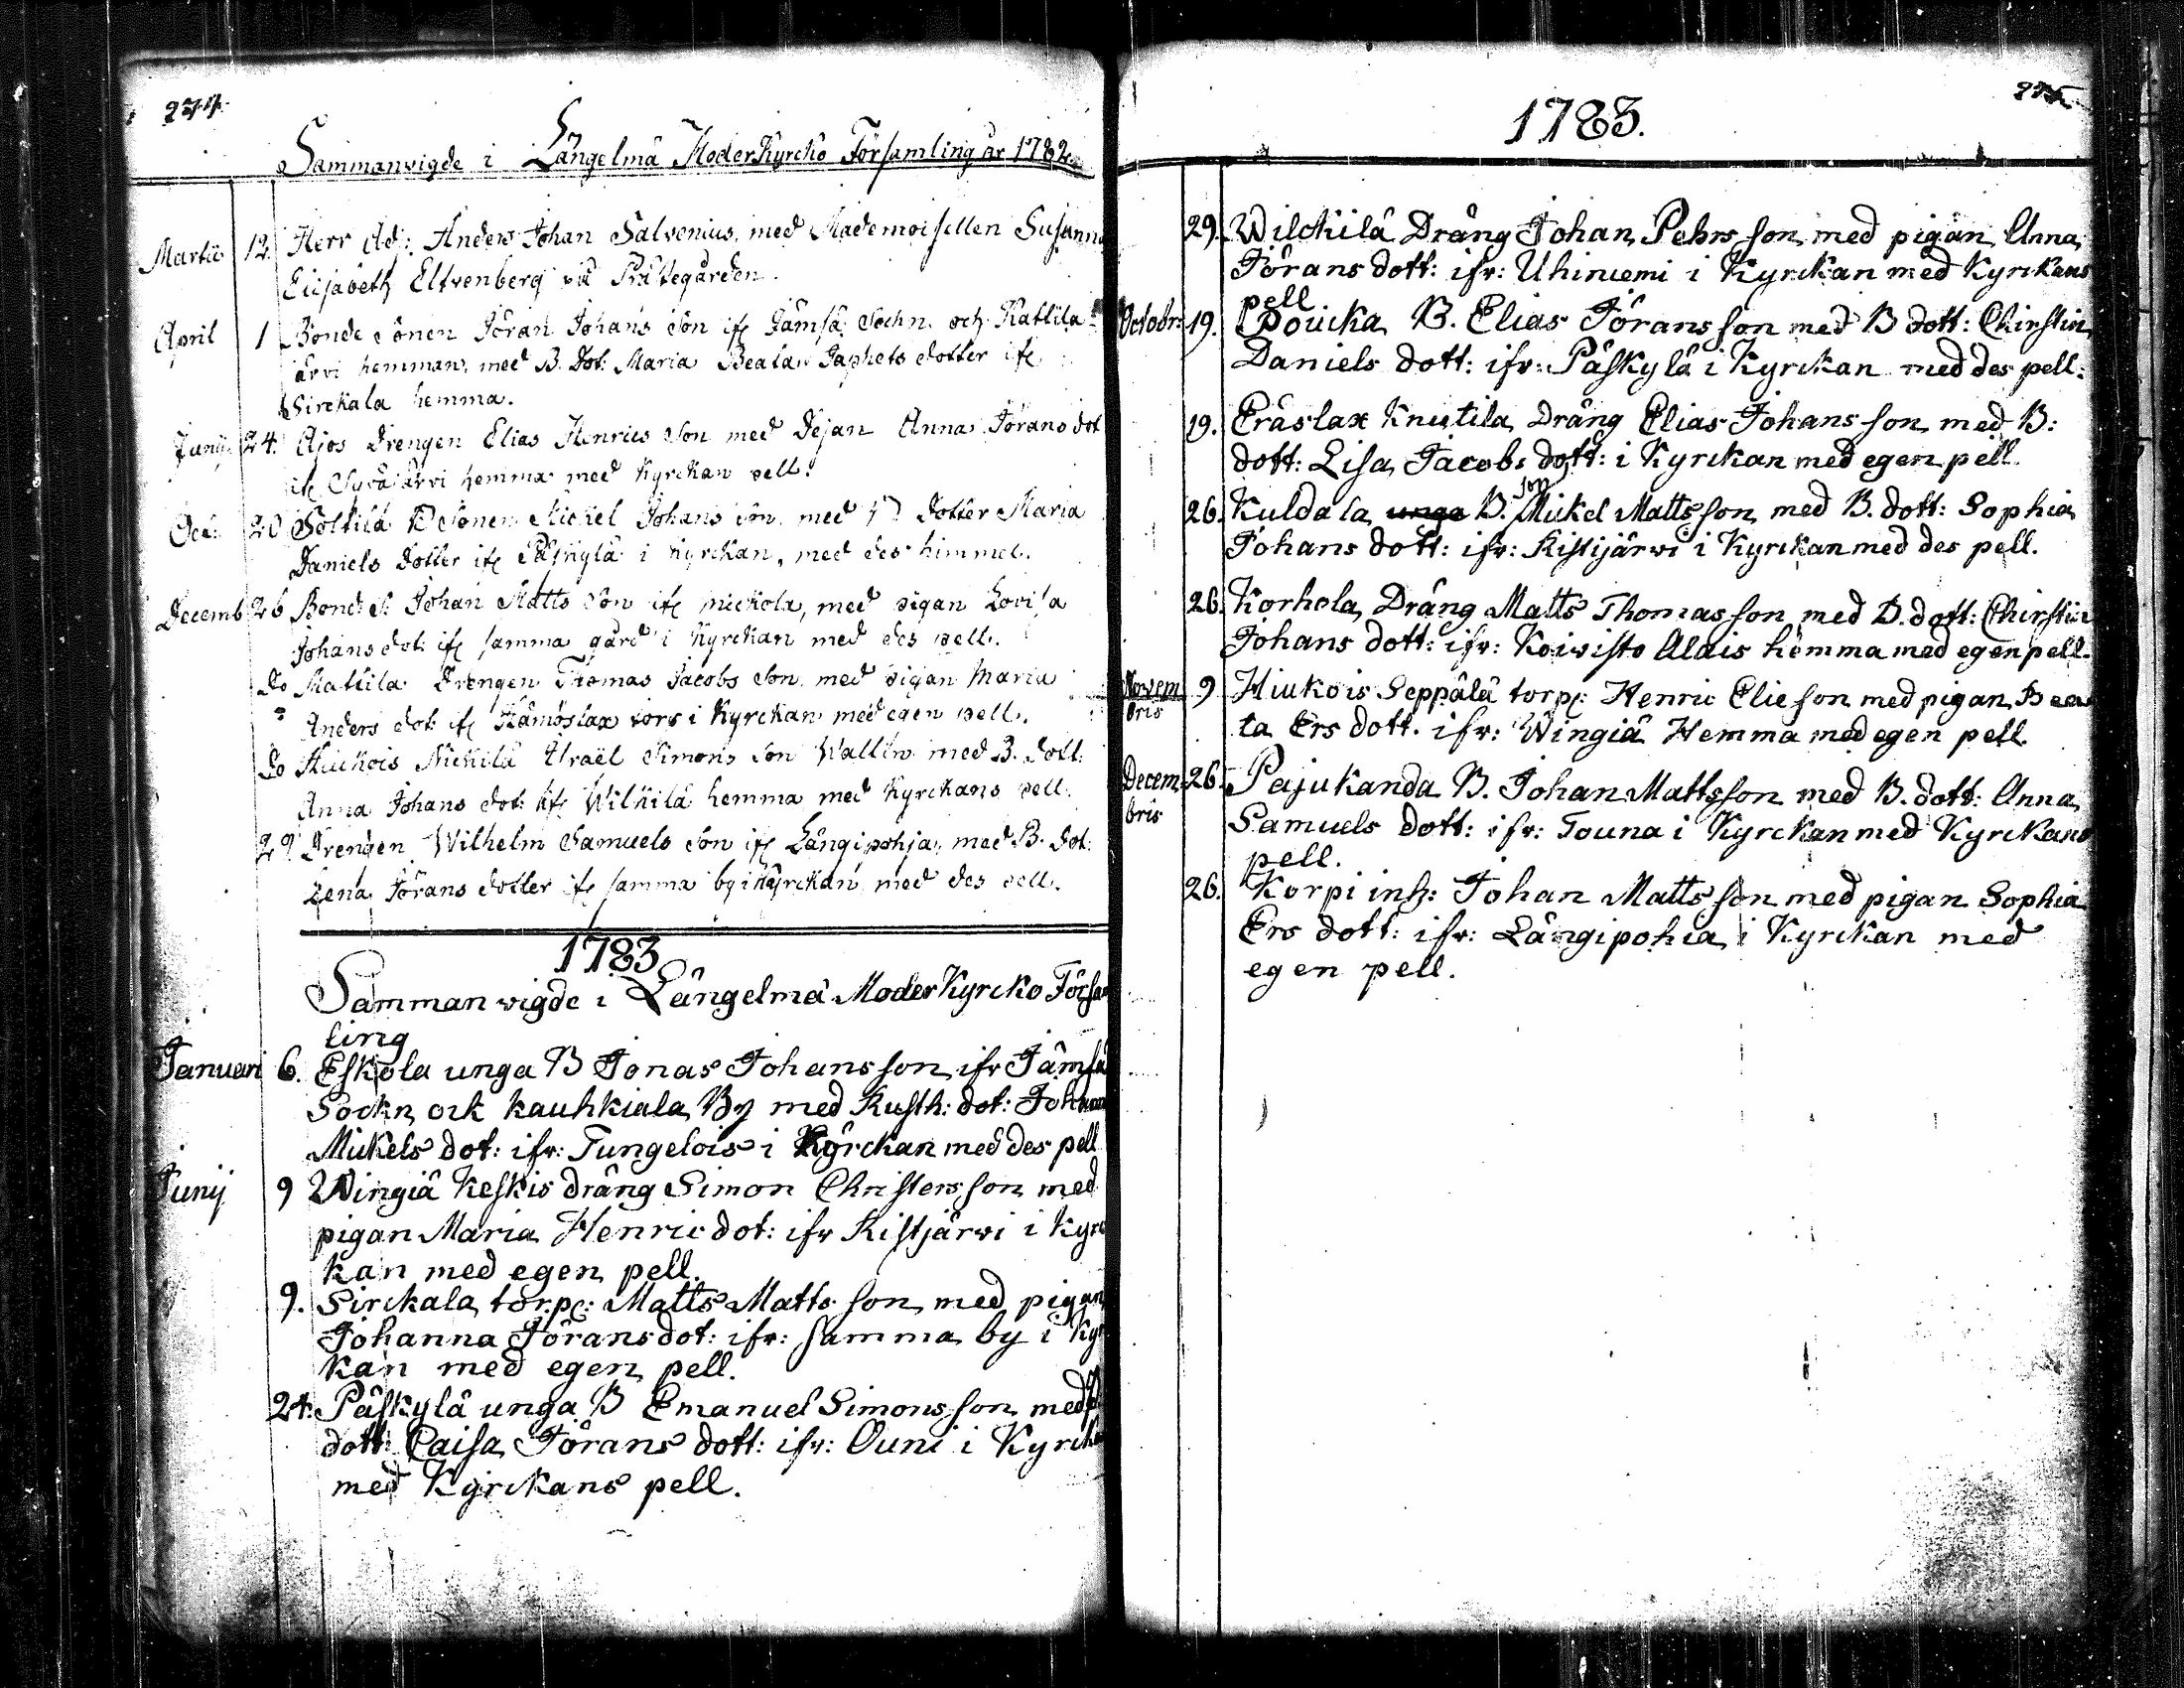 274.
Sammanvigde i Längelmä Moder Kyrcko Församling år 1782.
Martii 12. Herr Adj: Anders Johan Salvenius, med Mademoisellen Susanna
Elisabeth Elfvenberg på Prästegården.
April 1 Bonde Sonen Jöran Johans Son ifr Jämsä Sochn och Kattila
ärvi hemman, med B. Dot: Maria Beata Japhets dotter ifr
Sirckala hemma.
Junij 24. Ajos Drengen Elias Henrics Son med Dejan Anna Jörans dot
ifr Syväjärvi hemma med Kyrckan pell.
Oct: 20 Soltila B Sonen Mickel Johans Son, med B Dotter Maria
Daniels Dotter ifr Päskylä i Kyrckan, med des himmel.
Decemb 26 Bond. S. Johan Matts Son ifr Mickola, med pigan Lovisa
Johans dot: ifr samma gård i Kyrckan med des pell.
Do Mattila Drengen Thomas Jacobs Son med pigan Maria
Anders dot: ifr Kämöslax torp i Kyrckan med egen pell.
Do Hiuckois Nickilä Israël Simons Son Wallin med B. Dott:
Anna Johans dot: ifr Wilkilä hemma med Kyrckans pell.
29 Drengen Wilhelm Samuels Son ifr Långipohja, med B. Dot:
Lena Jörans dotter ifr samma by i Kyrckan med des pell.
1783
Sammanvigde i Längelmä Moder Kyrcko Försam
ling
Januari 6. Eskola unga B Jonas Johansson ifr Jämsä
Sockn ock kauhkiala By med Rusth: dot: Johanna
Mickels dot: ifr: Tungelois i Kyrckan med des pell
Junij 9 Wingiä Keskis dräng Simon Christersson med
pigan Maria Henric dot: ifr Kistjärwi i Kyrc
kan med egen pell.
9. Sirckala torp: Matts Matts son med pigan
Johanna Jörans dot: ifr: samma by i Kyr
kan med egen pell.
24. Päskylä unga B Emanuel Simonsson med B
dott: Caisa Jörans dott: ifr: Ouni i Kyrcka
med Kyrckans pell.
1783.
29. Wilckilä Dräng Johan Pehrs son med pigan Anna
Jörans dott: ifr: Uhiniemi i Kyrckan med Kyrckans
pell
Octobr: 19. Pouicka B. Elias Jörans son med B dott: Chirstin
Daniels dott: ifr: Päskylä i Kyrckan med des pell:
19. Eräslax Knutila Dräng Elias Johans son med B:
dott: Lisa Jacobs dott: i Kyrckan med egen pell.
26. Kuldala unga B. son Mickel Matts son med B. dott: Sophia
Johans dott: ifr: Kistijärwi i Kyrckan med des pell.
26. Korhola Dräng Matts Thomas son med B. dott: Chirstin
Johans dott: ifr: Koiwisto Alais hemma med egen pell.
Novem
bris 9 Hiukois Seppälä torp: Henric Elie son med pigan Bea
ta Ers dott. ifr: Wingiä Hemma med egen pell.
Decem
bris 26. Pajukanda B. Johan Mattsson med B. dott: Anna
Samuels dott: ifr: Touna i Kyrckan med Kyrckans
pell.
26. Korpi inh: Johan Matts son med pigan Sophia
Ers dott: ifr: Långipohia i Kyrckan med
egen pell.